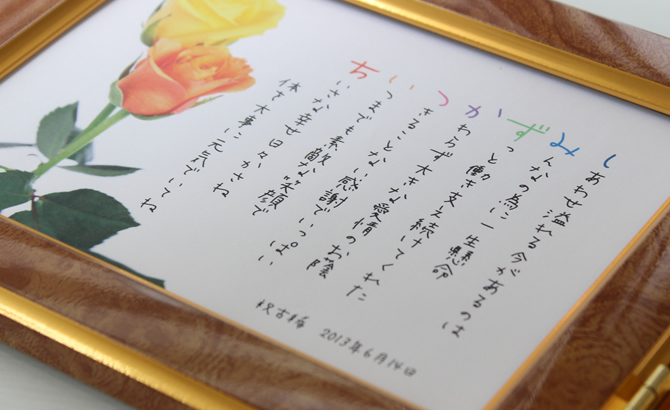 しあわせ溢れる今があるのは
みんなの為に一生懸命
ずっと働き支え続けてくれた
かわらず大きな愛情のお陰
つきることない感謝でいっぱい
いつまでも素敵な笑顔で
ちいさな幸せ日々かさね
体を大事に元気でいてね
祝古稀 2013年6月14日